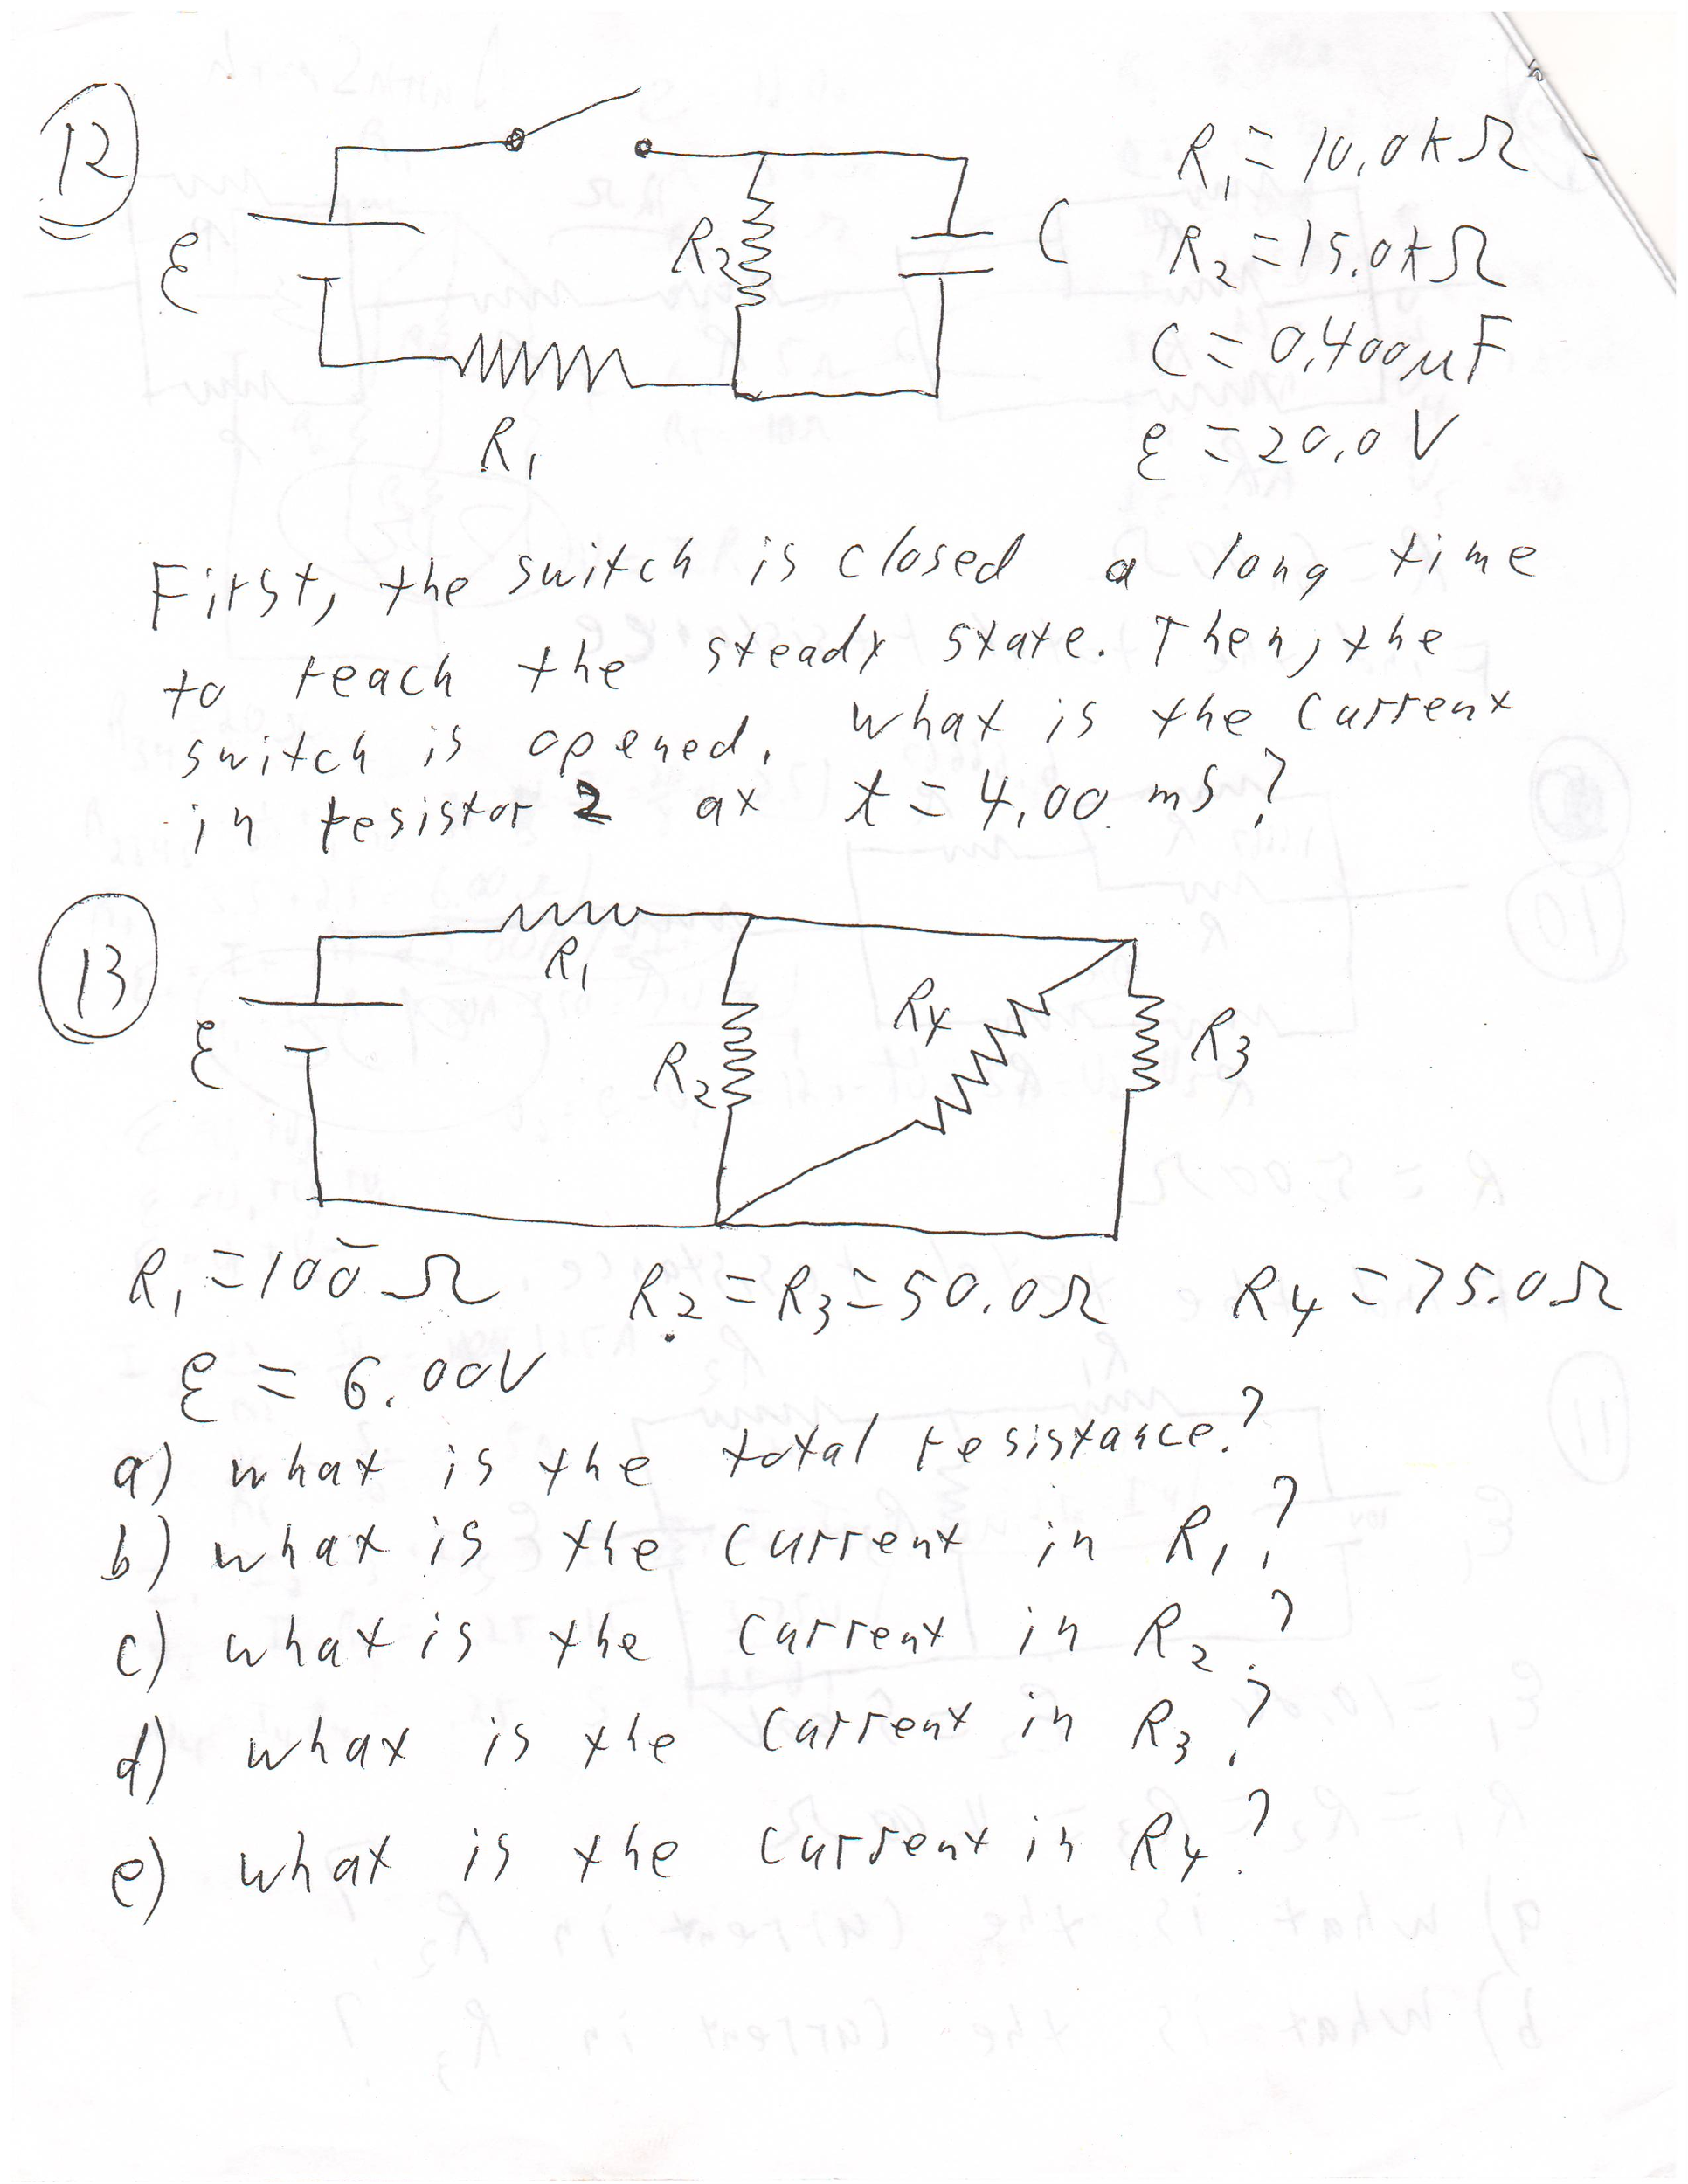 12
R₁ = 10.0kΩ
R₂ = 15.0kΩ
C = 0.400μF
ε = 20.0 V
ε
R₂
C
R₁
First, the switch is closed a long time
to reach the steady state. Then, the
switch is opened. What is the current
in resistor 2 at t = 4.00 ms?
13
R₁
ε
R₂
R₄
R₃
R₁ = 100̄ Ω R₂ = R₃ = 50.0Ω R₄ = 75.0Ω
ε = 6.00V
a) what is the total resistance?
b) what is the current in R₁?
c) what is the current in R₂?
d) what is the current in R₃?
e) what is the current in R₄?